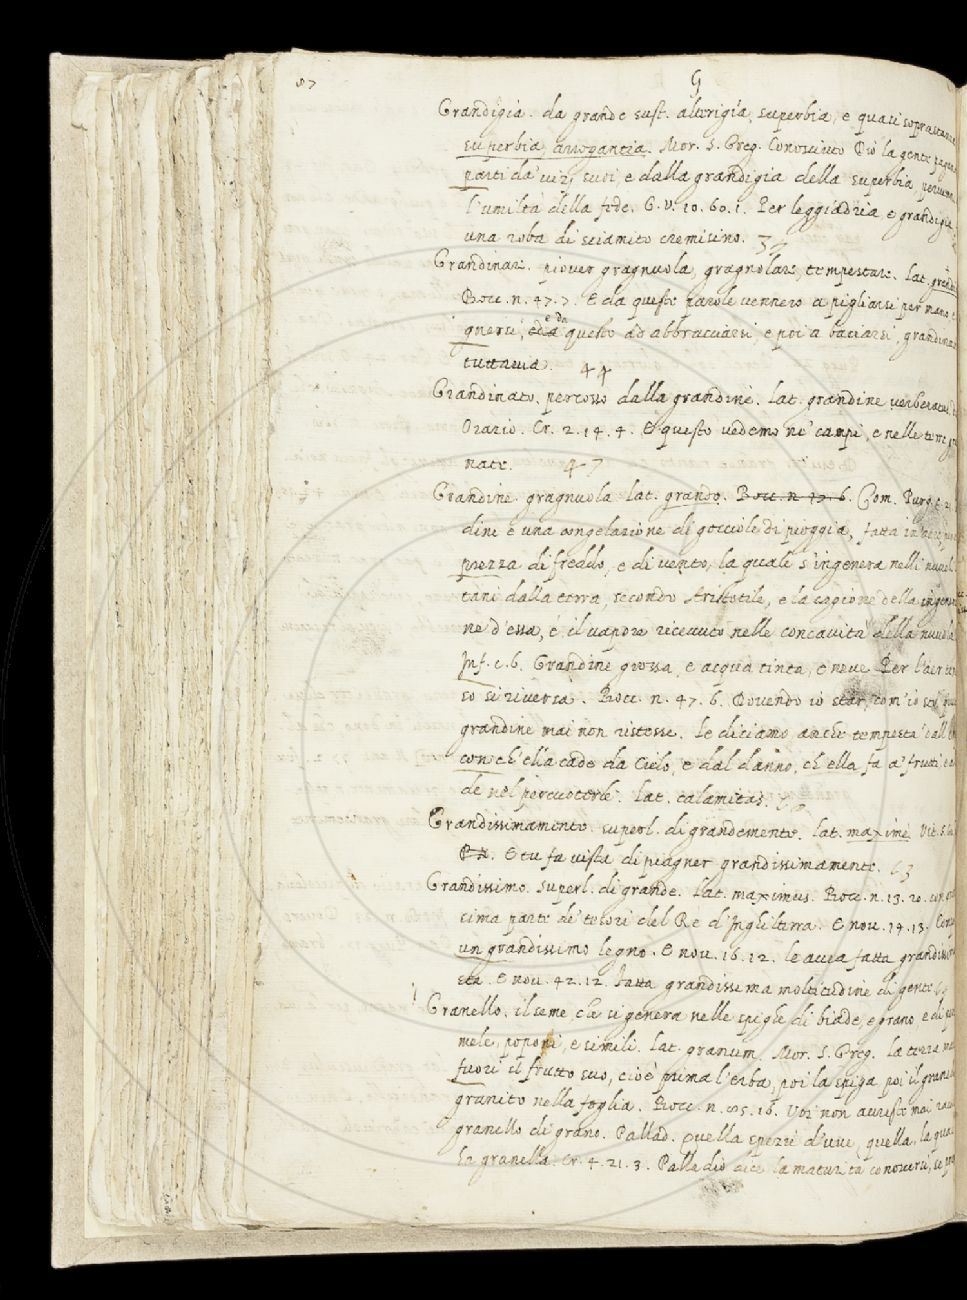 87
G
Grandigia. da grande sust. alterigia, superbia, e quasi soprastanza
superbia, arrogantia. Mor. S. Greg. Conosciuto Dio la gente pagana
parti da' vizj suoi, e dalla grandigia della superbia pervenne
l'umiltà della fede. G. V. 10. 60. 1. Per leggiadria e grandigia
una roba di sciamito cremisino. 37
Grandinare. piover gragnuola, gragnolare, tempestare. Lat. grandi
Bocc. n. 47. 7. E da queste parole vennero a pigliarsi per mano e
gnersi, e da questo ad abbracciarsi, e poi a baciarsi, grandinan
tuttavia. 44
Grandinato. percosso dalla grandine. Lat. grandine verberatus
Orazio. Cr. 2. 14. 4. E questo vedemo ne' campi, e nelle terre gr
nate. 47
Grandine. gragnuola. Lat. grando. Bocc. n. 47. 6. Com. Purg. c. 21
dine è una congelazione di gocciole di pioggia, fatta in aere, per
prezza di freddo, e di vento, la quale s'ingenera nelli nuvoli
tani dalla terra, secondo Aristotile, e la cagione della ingene
ne d'essa, è il vapore ricevuto nelle concavità della nuvola
Inf. c. 6. Grandine grossa, e acqua tinta, e neve Per l'aer ten
so si riversa. Bocc. n. 47. 6. Dovendo io star, com'io sto, se
grandine mai non ristesse. Le diciamo anche tempesta dall'
con ch'ella cade da Cielo, e dal danno, ch'ella fa a' frutti, e
de nel percuoterle. Lat. calamitas.
Grandissimamente. superl. di grandemente. Lat. maximè. Vit. S.
E tu fa vista di piagner grandissimamente. 63
Grandissimo. superl. di grande. Lat. maximus. Bocc. n. 13. 20. con
sima parte de' tesori del Re d'Inghilterra. E nov. 14. 13. Comp
un grandissimo legno. E nov. 16. 12. le avea fatta grandissi
sta. E nov. 42. 12. fatta grandissima moltitudine di gente
Granello. il seme, che si genera nelle spighe di biade, e grano, e di
mele, poponi, e simili. Lat. granum. Mor. S. Greg. La terra me
fuori il frutto suo, cioè prima l'erba, poi la spiga, poi il granel
granito nella foglia. Bocc. n. 85. 16. Voi non avreste mai rac
granello di grano. Pallad. Quella spezie d'uve, quella, la qua
la granella. Cr. 4. 21. 3. Palladio dice la maturità conoscersi, se